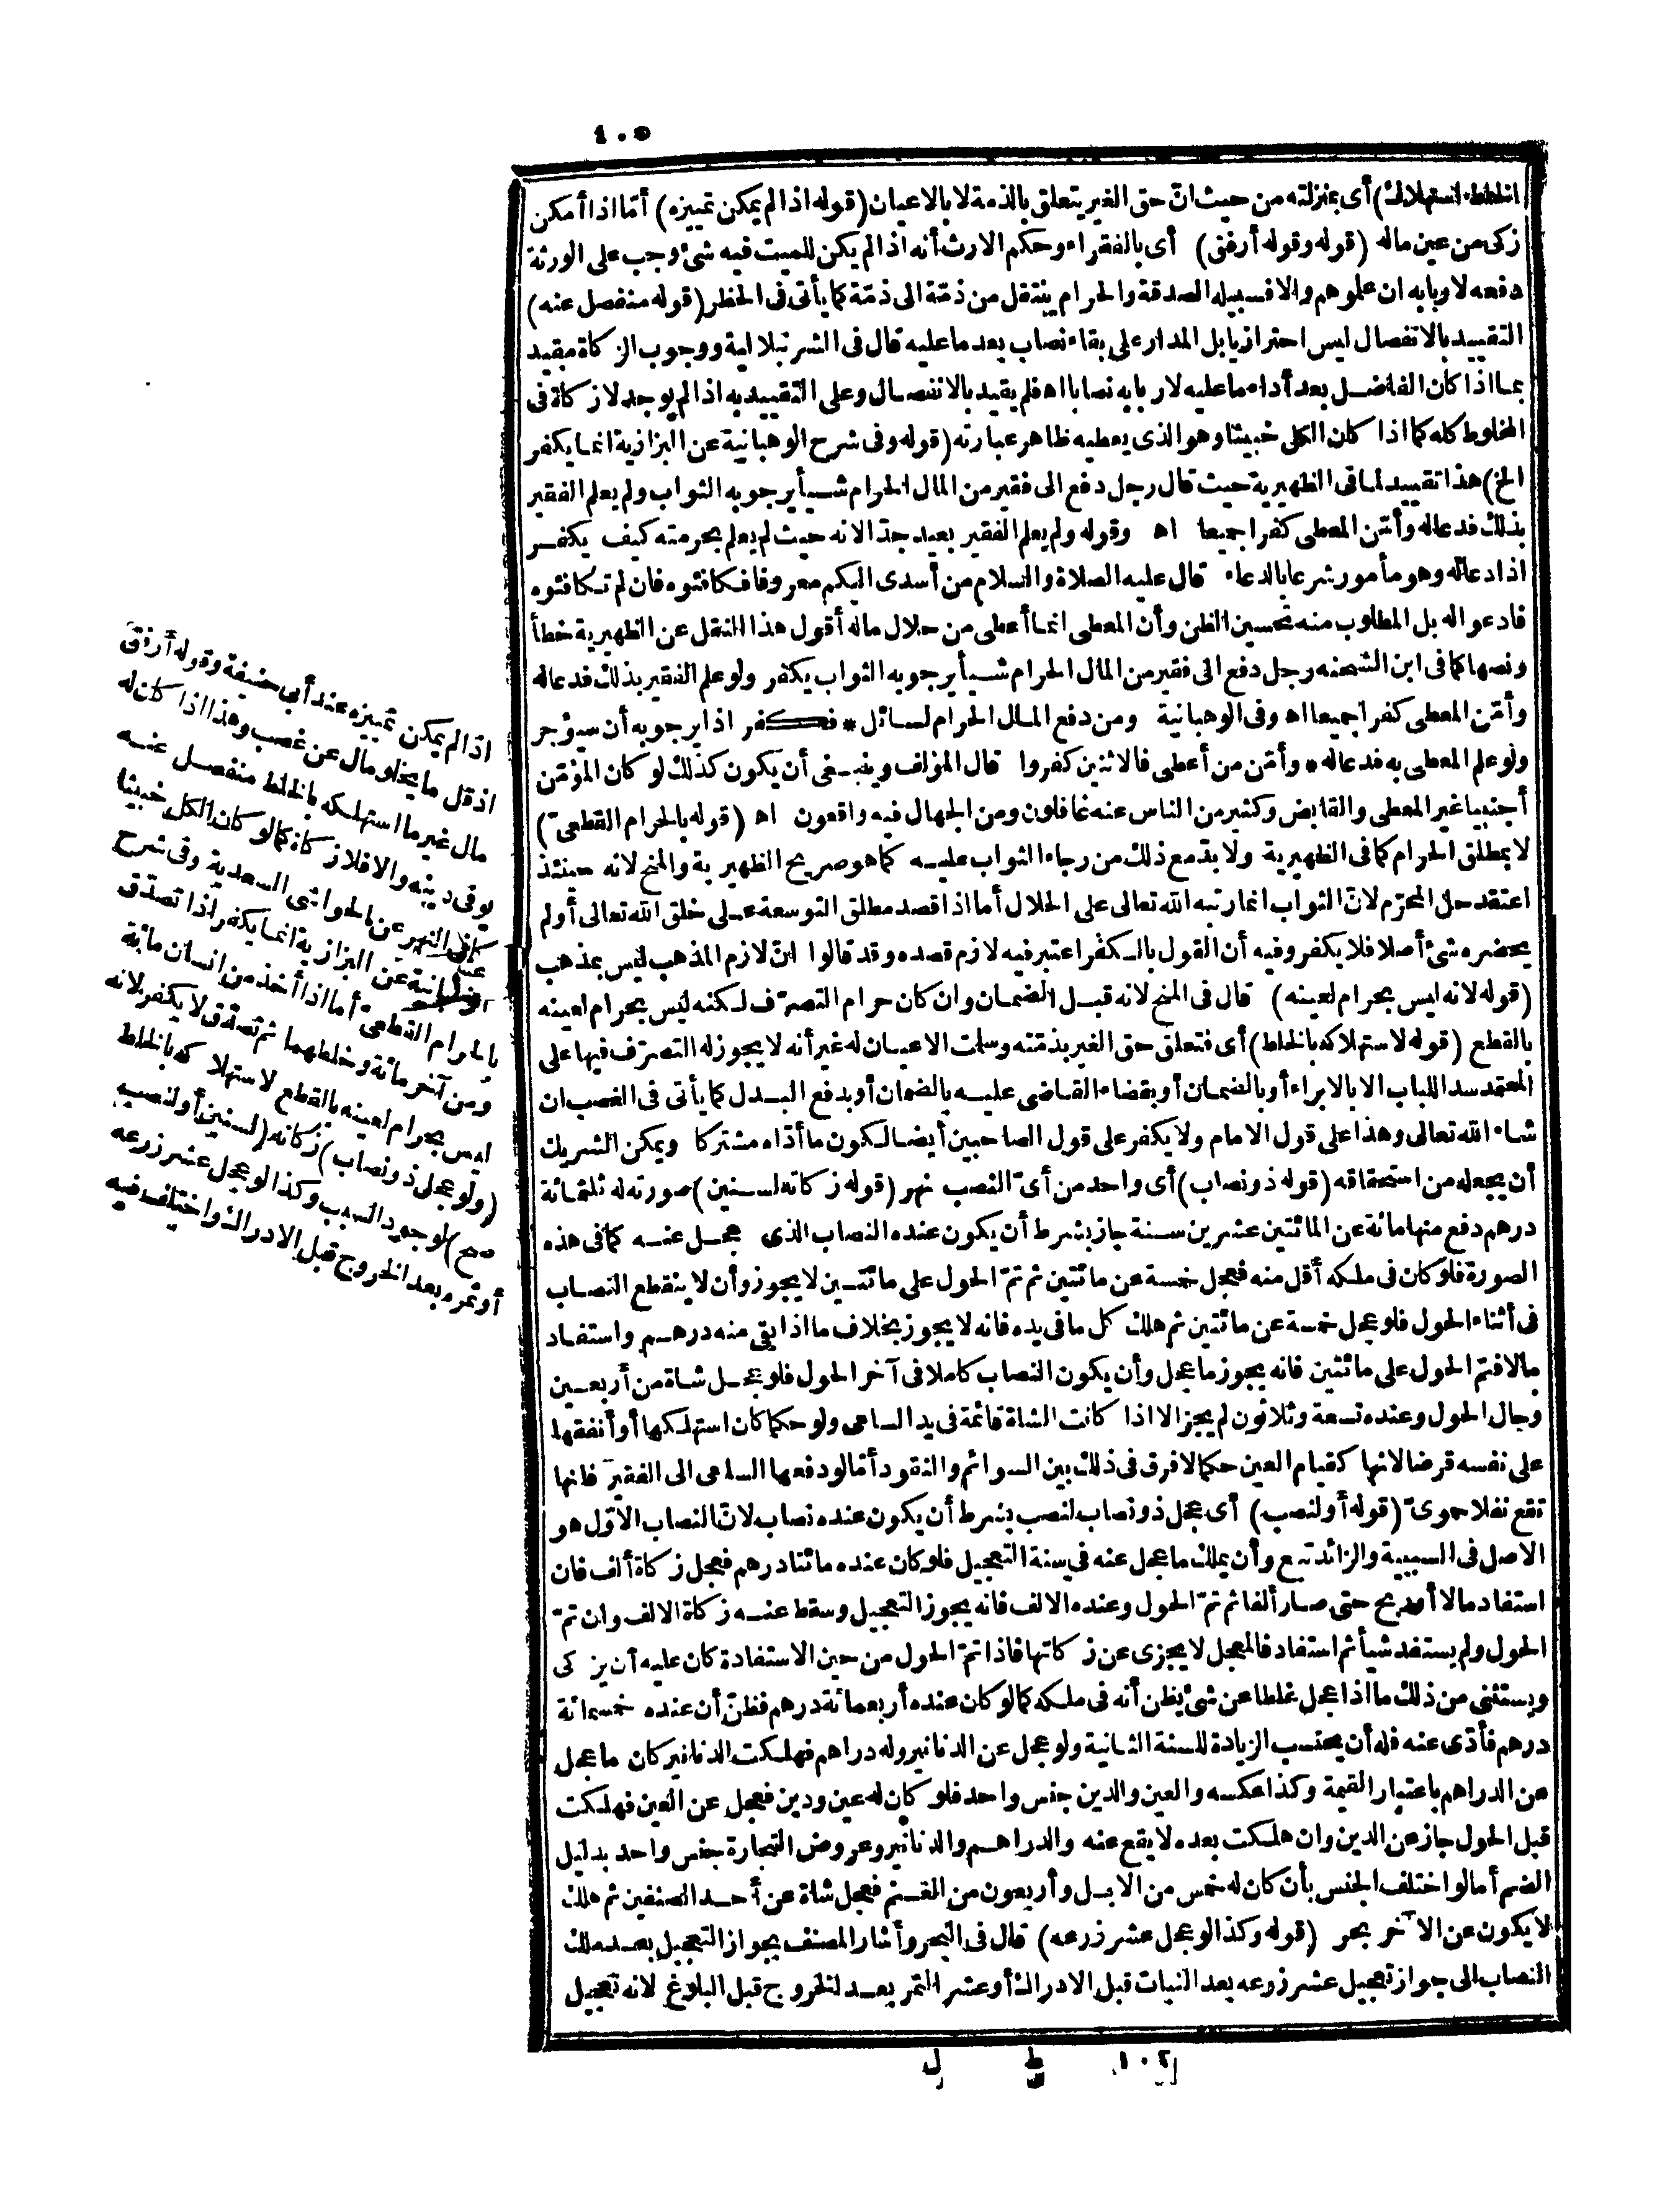 ٤٠٥
الخلط استهلاك) أى بمنزلته من حيث ان حق الغير يتعلق بالذمة لا بالاعيان (قوله اذا لم يمكن تمييزه) أمّا اذا أمكن
زكى من عين ماله (قوله وقوله أرفق) أى بالفقراء وحكم الارث أنه اذا لم يكن للميت فيه شئ وجب على الورثة
دفعه لاربابه ان علموهم والا فسبيله الصدقة والحرام ينتقل من ذمّة الى ذمّة كما يأتى فى الحظر (قوله منفصل عنه)
التقييد بالانفصال ليس احترازيا بل المدار على بقاء نصاب بعد ما عليه قال فى الشرنبلالية ووجوب الزكاة مقيد
بما اذا كان الفاضل بعد أداء ما عليه لاربابه نصابا اه فلم يقيد بالانفصال وعلى التقييد به اذا لم يوجد لا زكاة فى
المخلوط كله كما اذا كان الكل خبيثا وهو الذى يعطيه ظاهر عبارته (قوله وفى شرح الوهبانية عن البزازية انما يكفر
الخ) هذا تقييد لما فى الظهيرية حيث قال رجل دفع الى فقير من المال الحرام شيأ يرجو به الثواب ولم يعلم الفقير
بذلك فدعا له وأمّن المعطى كفرا جميعا اه وقوله ولم يعلم الفقير بعيد جدّا لانه حيث لم يعلم بحرمته كيف يكفر
اذا دعا له وهو مأمور شرعا بالدعاء قال عليه الصلاة والسلام من أسدى اليكم معروفا فكافئوه فان لم تكافئوه
فادعوا له بل المطلوب منه تحسين الظن وأن المعطى انما أعطى من حلال ماله أقول هذا النقل عن الظهيرية خطأ
ونصها كما فى ابن الشحنه رجل دفع الى فقير من المال الحرام شيأ يرجو به الثواب يكفر ولو علم الفقير بذلك فدعا له
وأمّن المعطى كفرا جميعا اه وفى الوهبانية ومن دفع المال الحرام لسائل * فكفر اذا يرجو به أن سيؤجر
ولو علم المعطى به فدعا له * وأمّن من أعطى فالاثنين كفروا قال المؤلف وينبغى أن يكون كذلك لو كان المؤمّن
أجنبيا غير المعطى والقابض وكثير من الناس عنه غافلون ومن الجهال فيه واقعون اه (قوله بالحرام القطعىّ)
لا بمطلق الحرام كما فى الظهيرية ولا بدّ مع ذلك من رجاء الثواب عليه كما هو صريح الظهيرية والمنح لانه حينئذ
اعتقد حل المحرّم لانّ الثواب انما رتبه الله تعالى على الحلال أما اذا قصد مطلق التوسعة على خلق الله تعالى أو لم
يحضره شئ أصلا فلا يكفر وفيه أن القول بالكفر اعتبر فيه لازم قصده وقد قالوا انّ لازم المذهب ليس بمذهب
(قوله لانه ليس بحرام لعينه) قال فى المنح لانه قبل الضمان وان كان حرام التصرّف لكنه ليس بحرام لعينه
بالقطع (قوله لاستهلاكه بالخلط) أى فتعلق حق الغير بذمّته وسلمت الاعيان له غير أنه لا يجوز له التصرّف فيها على
المعتمد سد اللباب الا بالابراء أو بالضمان أو بقضاء القاضى عليه بالضمان أو بدفع البدل كما يأتى فى الغصب ان
شاء الله تعالى وهذا على قول الامام ولا يكفر على قول الصاحبين أيضا لكون ما أدّاه مشتركا ويمكن الشريك
أن يجعله من استحقاقه (قوله ذو نصاب) أى واحد من أىّ النصب نهر (قوله زكاته لسنين) صورته له ثلثمائة
درهم دفع منها مائة عن المائتين عشرين سنة جاز بشرط أن يكون عنده النصاب الذى عجل عنه كما فى هذه
الصورة فلو كان فى ملكه أقل منه فعجل خمسة عن مائتين ثم تمّ الحول على مائتين لا يجوز وأن لا ينقطع النصاب
فى أثناء الحول فلو عجل خمسة عن مائتين ثم هلك كل ما فى يده فانه لا يجوز بخلاف ما اذا بقى منه درهم واستفاد
مالا فتمّ الحول على مائتين فانه يجوز ما عجل وأن يكون النصاب كاملا فى آخر الحول فلو عجل شاة من أربعين
وحال الحول وعنده تسعة وثلاثون لم يجز الا اذا كانت الشاة قائمة فى يد الساعى ولو حكما كان استهلكها أو أنفقها
على نفسه قرضا لانها كقيام العين حكما لا فرق فى ذلك بين السوائم والنقود أمّا لو دفعها الساعى الى الفقير فانها
تقع نفلا حموىّ (قوله أو لنصب) أى عجل ذو نصاب لنصب بشرط أن يكون عنده نصاب لانّ النصاب الاوّل هو
الاصل فى السببية والزائد تبع وأن يملك ما عجل عنه فى سنة التعجيل فلو كان عنده مائتا درهم فعجل زكاة ألف فان
استفاد مالا أو ربح حتى صار ألفا ثم تمّ الحول وعنده الالف فانه يجوز التعجيل وسقط عنه زكاة الالف وان تمّ
الحول ولم يستفد شيأ ثم استفاد فالمعجل لا يجزى عن زكاتها فاذا تمّ الحول من حين الاستفادة كان عليه أن يزكى
ويستثنى من ذلك ما اذا عجل غلطا عن شئ يظن أنه فى ملكه كما لو كان عنده أربعمائة درهم فظنّ أن عنده خمسمائة
درهم فأدّى عنه فله أن يحتسب الزيادة للسنة الثانية ولو عجل عن الدنانير وله دراهم فهلكت الدنانير كان ما عجل
عن الدراهم باعتبار القيمة وكذا عكسه والعين والدين جنس واحد فلو كان له عين ودين فعجل عن العين فهلكت
قبل الحول جاز عن الدين وان هلكت بعده لا يقع عنه والدراهم والدنانير وعروض التجارة جنس واحد بدليل
الضم أما لو اختلف الجنس بأن كان له خمس من الابل وأربعون من الغنم فعجل شاة عن أحد الصنفين ثم هلك
لا يكون عن الآخر بحر (قوله وكذا لو عجل عشر زرعه) قال فى البحر وأشار المصنف بجواز التعجيل بعد ملك
النصاب الى جواز تعجيل عشر زرعه بعد النبات قبل الادراك أو عشر الثمر بعد الخروج قبل البلوغ لانه تعجيل
اذا لم يمكن تمييزه عند أبى حنيفة وقوله أرفق
اذ قل ما يخلو مال عن غصب وهذا اذا كان له
مال غير ما استهلكه بالخلط منفصل عنه
يوفى دينه والا فلا زكاة كما لو كان الكل خبيثا
كما فى النهر عن الحواشى السعدية وفى شرح
الوهبانية عن البزازية انما يكفر اذا تصدّق
بالحرام القطعىّ أما اذا أخذ من انسان مائة
ومن آخر مائة وخلطهما ثم تصدّق لا يكفر لانه
ليس بحرام لعينه بالقطع لاستهلاكه بالخلط
(ولو عجل ذو نصاب) زكاته (لسنين أو لنصب
صح) لوجود السبب وكذا لو عجل عشر زرعه
أو ثمره بعد الخروج قبل الادراك واختلف فيه
١٠٢ ط ل